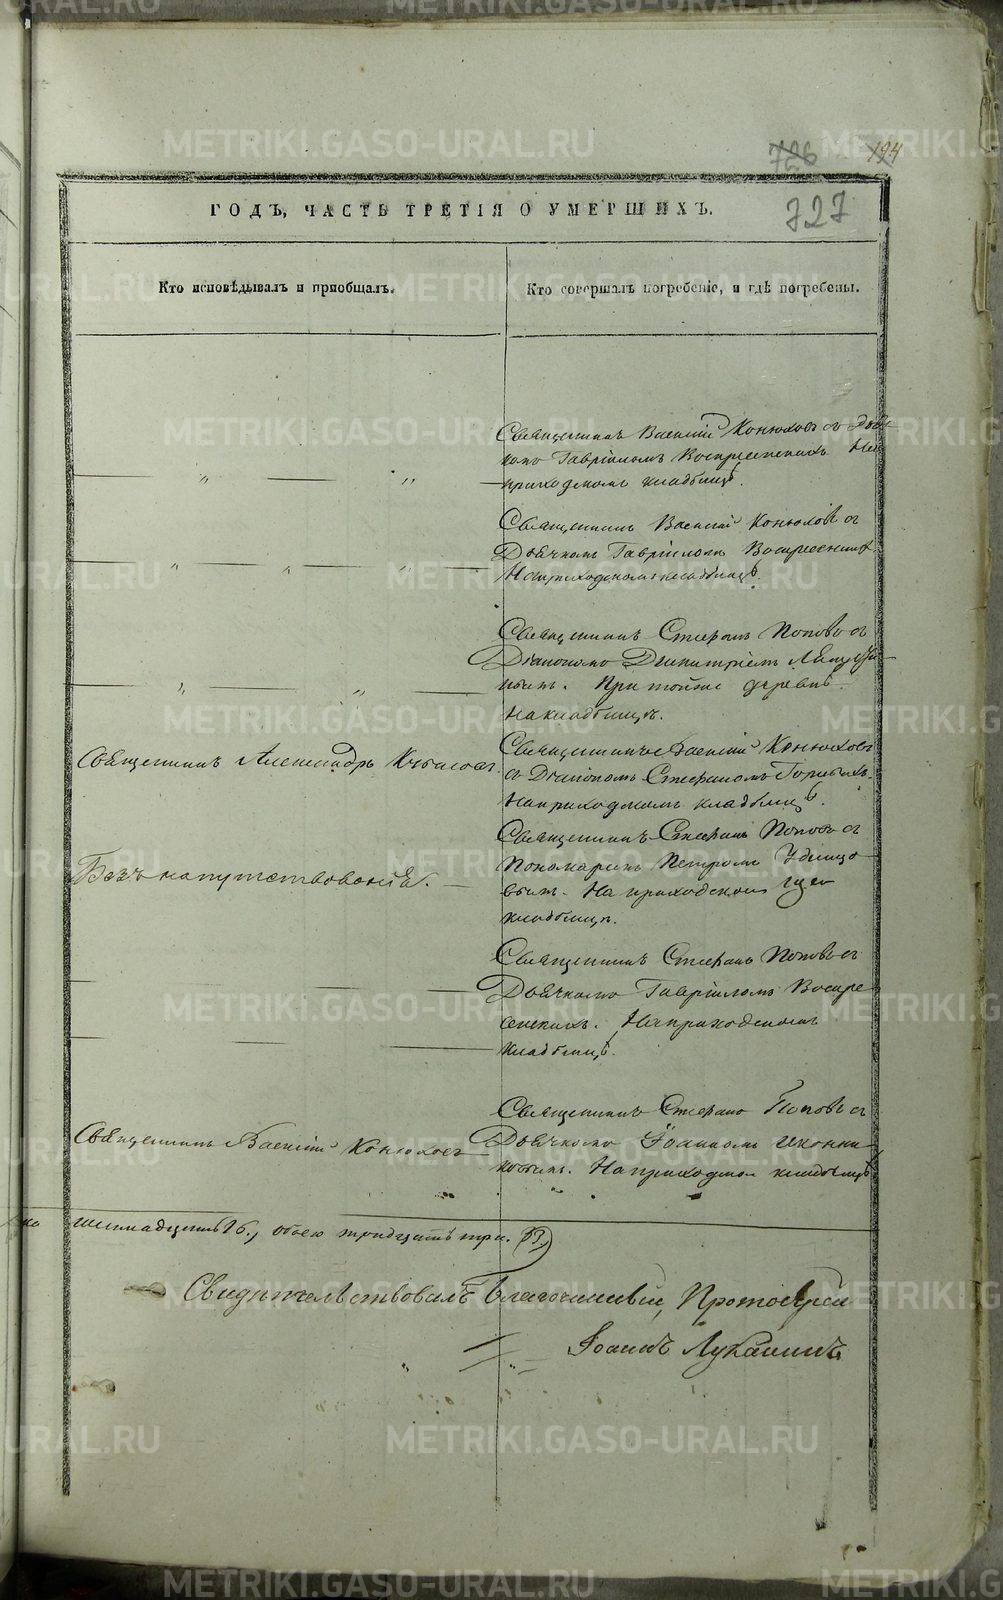 726 194
ГОДЪ, ЧАСТЬ ТРЕТІЯ О УМЕРШИХЪ. 727
Кто исповѣдывалъ и пріобщалъ.
Кто совершалъ погребеніе, и гдѣ погребены.
Священникъ Василій Конюховъ съ
Гавріиломъ Воскресенскимъ На
приходскомъ кладбищѣ.
Священникъ Василій Конюховъ съ
Дьячкомъ Гавріиломъ Воскресенскимъ
На приходскомъ кладбищѣ.
Священникъ Стефанъ Поповъ съ
Діакономъ Димитріемъ
При тойже деревнѣ
На кладбищѣ.
Священникъ Александръ
Священникъ Василій Конюховъ
съ Діакономъ Стефаномъ Горныхъ.
На приходскомъ кладбищѣ.
Безъ напутствованія.
Священникъ Стефанъ Поповъ съ
Пономаремъ Петромъ Удинцо
вымъ. На приходскомъ
кладбищѣ.
Священникъ Стефанъ Поповъ съ
Дьячкомъ Гавріиломъ Воскре
сенскимъ. На приходскомъ
кладбищѣ.
Священникъ Василій Конюховъ
Священникъ Стефанъ Поповъ съ
Дьячкомъ Іоанномъ Иконни
ковымъ. На приходском кладбищѣ
шестнадцать 16., обоего тридцать три. 33.
Свидѣтельствовалъ Благочинный, Протоіерей
Іоаннъ Луканинъ
METRIKI.GASO-URAL.RU